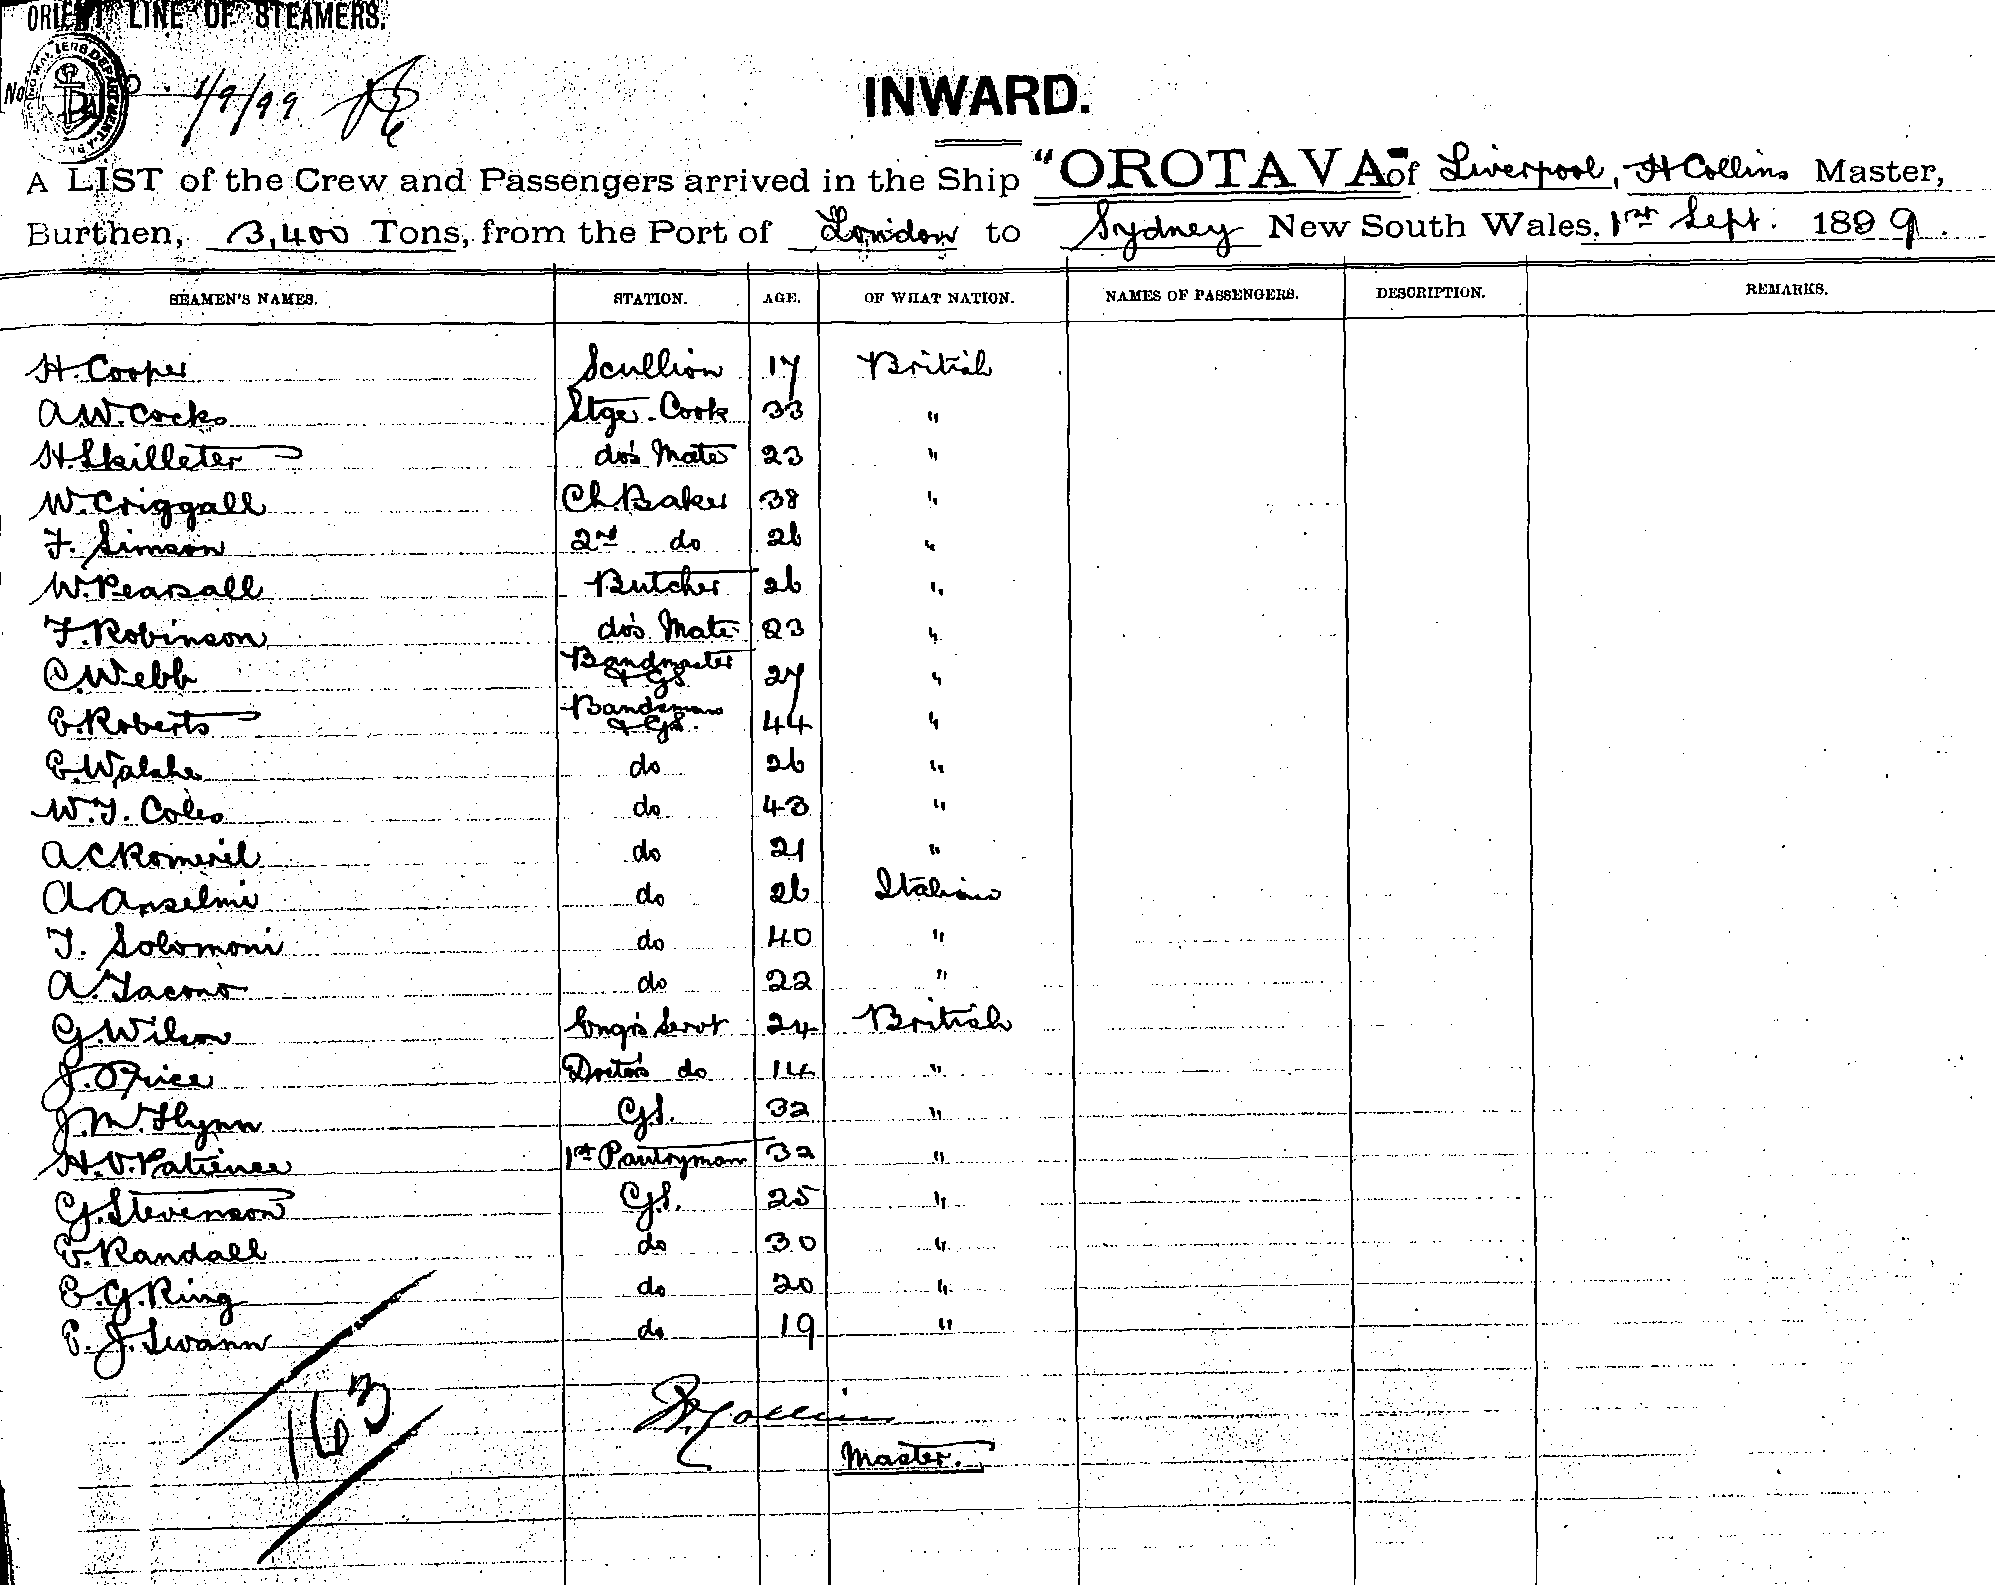 ORIENT LINE OF STEAMERS.
No. 1/9/99
INWARD.
A LIST of the Crew and Passengers arrived in the Ship "OROTAVA" of Liverpool, H Collins Master,
Burthen, 3,400 Tons, from the Port of London to Sydney New South Wales, 1st Sept. 1899.
SEAMEN'S NAMES. STATION. AGE. OF WHAT NATION. NAMES OF PASSENGERS. DESCRIPTION. REMARKS.
H. Cooper Scullion 17 British
A.W. Cocks Stge. Cook 33 "
H. Skilleter do's Mate 23 "
W. Criggall Ch. Baker 38 "
F. Simson 2nd do 26 "
W. Pearsall Butcher 26 "
F. Robinson do's Mate 23 "
C. Webb Bandmaster & GS 27 "
E. Roberts Bandsman & GS. 44 "
E. Walshe do 26 "
W.J. Coles do 43 "
A C Romeril do 21 "
A. Anselmi do 26 Italian
T. Solomoni do 40 "
A. Iacono do 22 "
G. Wilson Engr's Servt 24 British
J. Price Doctor's do 14 "
J.M. Flynn G.S. 32 "
H.V. Patience 1st Pantryman 32 "
G. Stevenson G.S. 25 "
E. Randall do 30 "
E.G. Ring do 20 "
E. J. Swann do 19 "
163
H. Collins
Master.